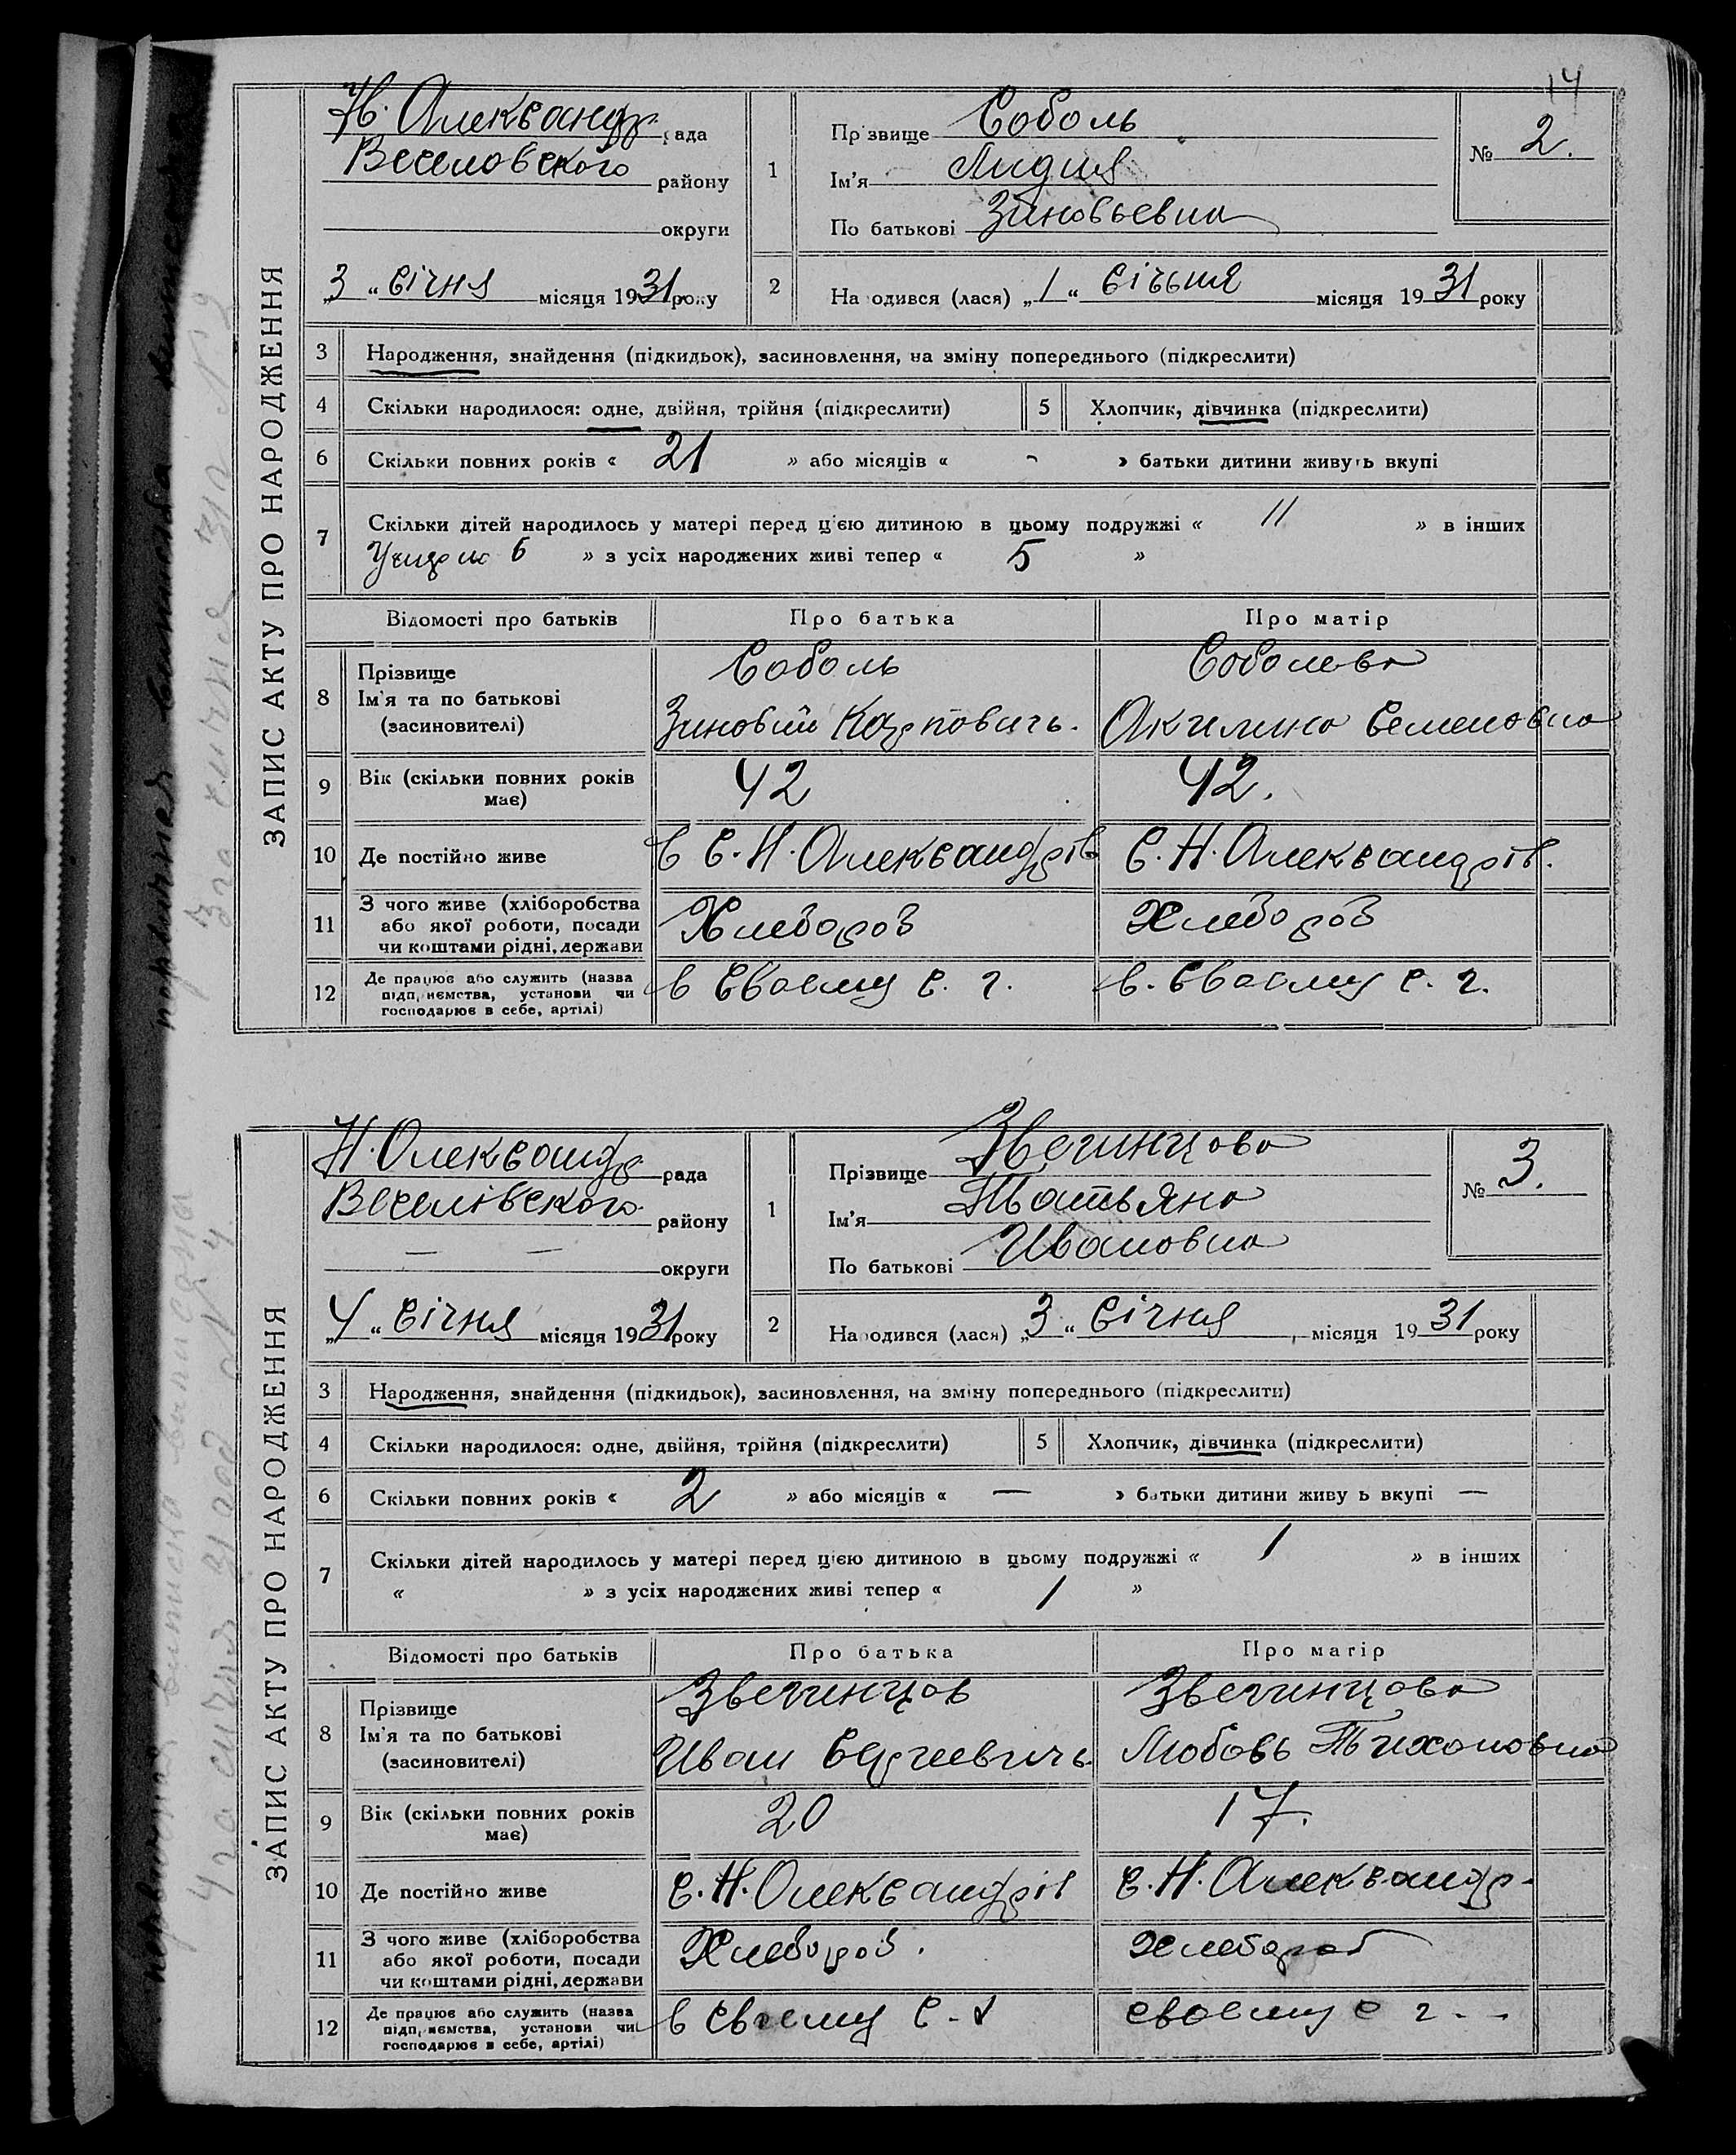 14
ЗАПИС АКТУ ПРО НАРОДЖЕННЯ
Н. Александр. рада
Веселовского району
округи
„3“ січня місяця 1931 року
1
Прізвище Соболь
Ім'я Лидия
По батькові Зиновьевна
№ 2.
2
Народився (лася) „1“ січня місяця 1931 року
3 Народження, знайдення (підкидьок), засиновлення, на зміну попереднього (підкреслити)
4 Скільки народилося: одне, двійня, трійня (підкреслити) 5 Хлопчик, дівчинка (підкреслити)
6 Скільки повних років « 21 » або місяців « - » батьки дитини живуть вкупі
7 Скільки дітей народилось у матері перед цією дитиною в цьому подружжі « 11 » в інших
6 » з усіх народжених живі тепер « 5 »
Відомості про батьків Про батька Про матір
8 Прізвище Соболь Соболева
Ім'я та по батькові Зиновий Карпович. Акилина Семеновна
(засновителі)
9 Вік (скільки повних років має) 42 42.
10 Де постійно живе в С. Н. Александрів С. Н. Александрів.
11 З чого живе (хліборобства або якої роботи, посади чи коштами рідні, держави Хлебороб Хлебороб
12 Де працює або служить (назва підприємства, установи чи господарює в себе, артілі) в Своєму с. г. в. Своєму с. г.
ЗАПИС АКТУ ПРО НАРОДЖЕННЯ
Н. Олександр рада
Веселівского району
— — округи
„4“ Січня місяця 1931 року
1
Прізвище Звегинцова
Ім'я Татьяна
По батькові Ивановна
№ 3.
2
Народився (лася) „3“ Січня місяця 1931 року
3 Народження, знайдення (підкидьок), засиновлення, на зміну попереднього (підкреслити)
4 Скільки народилося: одне, двійня, трійня (підкреслити) 5 Хлопчик, дівчинка (підкреслити)
6 Скільки повних років « 2 » або місяців « — » батьки дитини живу ь вкупі —
7 Скільки дітей народилось у матері перед цією дитиною в цьому подружжі « 1 » в інших
« » з усіх народжених живі тепер « 1 »
Відомості про батьків Про батька Про матір
8 Прізвище Звегинцов Звегинцова
Ім'я та по батькові Иван Сергеевичь Любовь Тихоновна
(засиновителі)
9 Вік (скільки повних років має) 20 17.
10 Де постійно живе С. Н. Олександрів С. Н. Александр.
11 З чого живе (хліборобства або якої роботи, посади чи коштами рідні, держави Хлебороб. Хлебороб
12 Де працює або служить (назва підприємства, установи чи господарює в себе, артілі) в Своєму с. г своєму с г - -